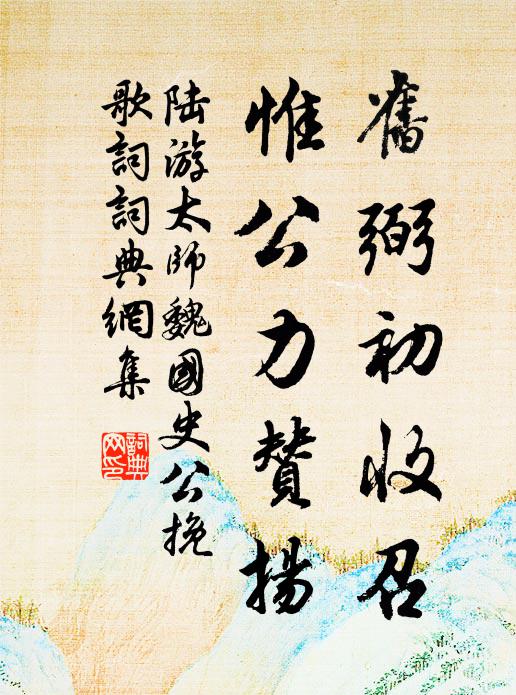 舊弼初收召
惟公力贊揚
陆游太师魏國史公挽
歌詞詞典網集
詞典网印